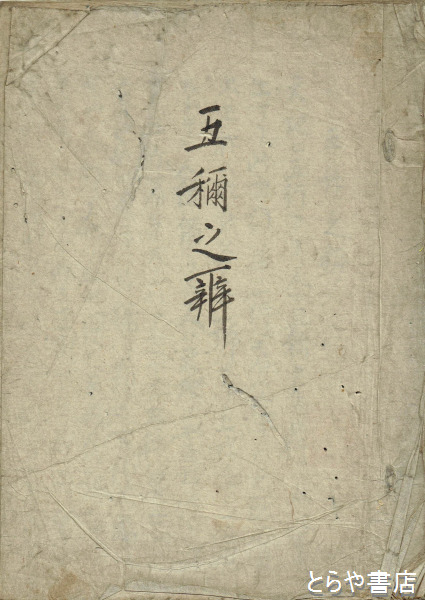 五禰之辨
とらや書店